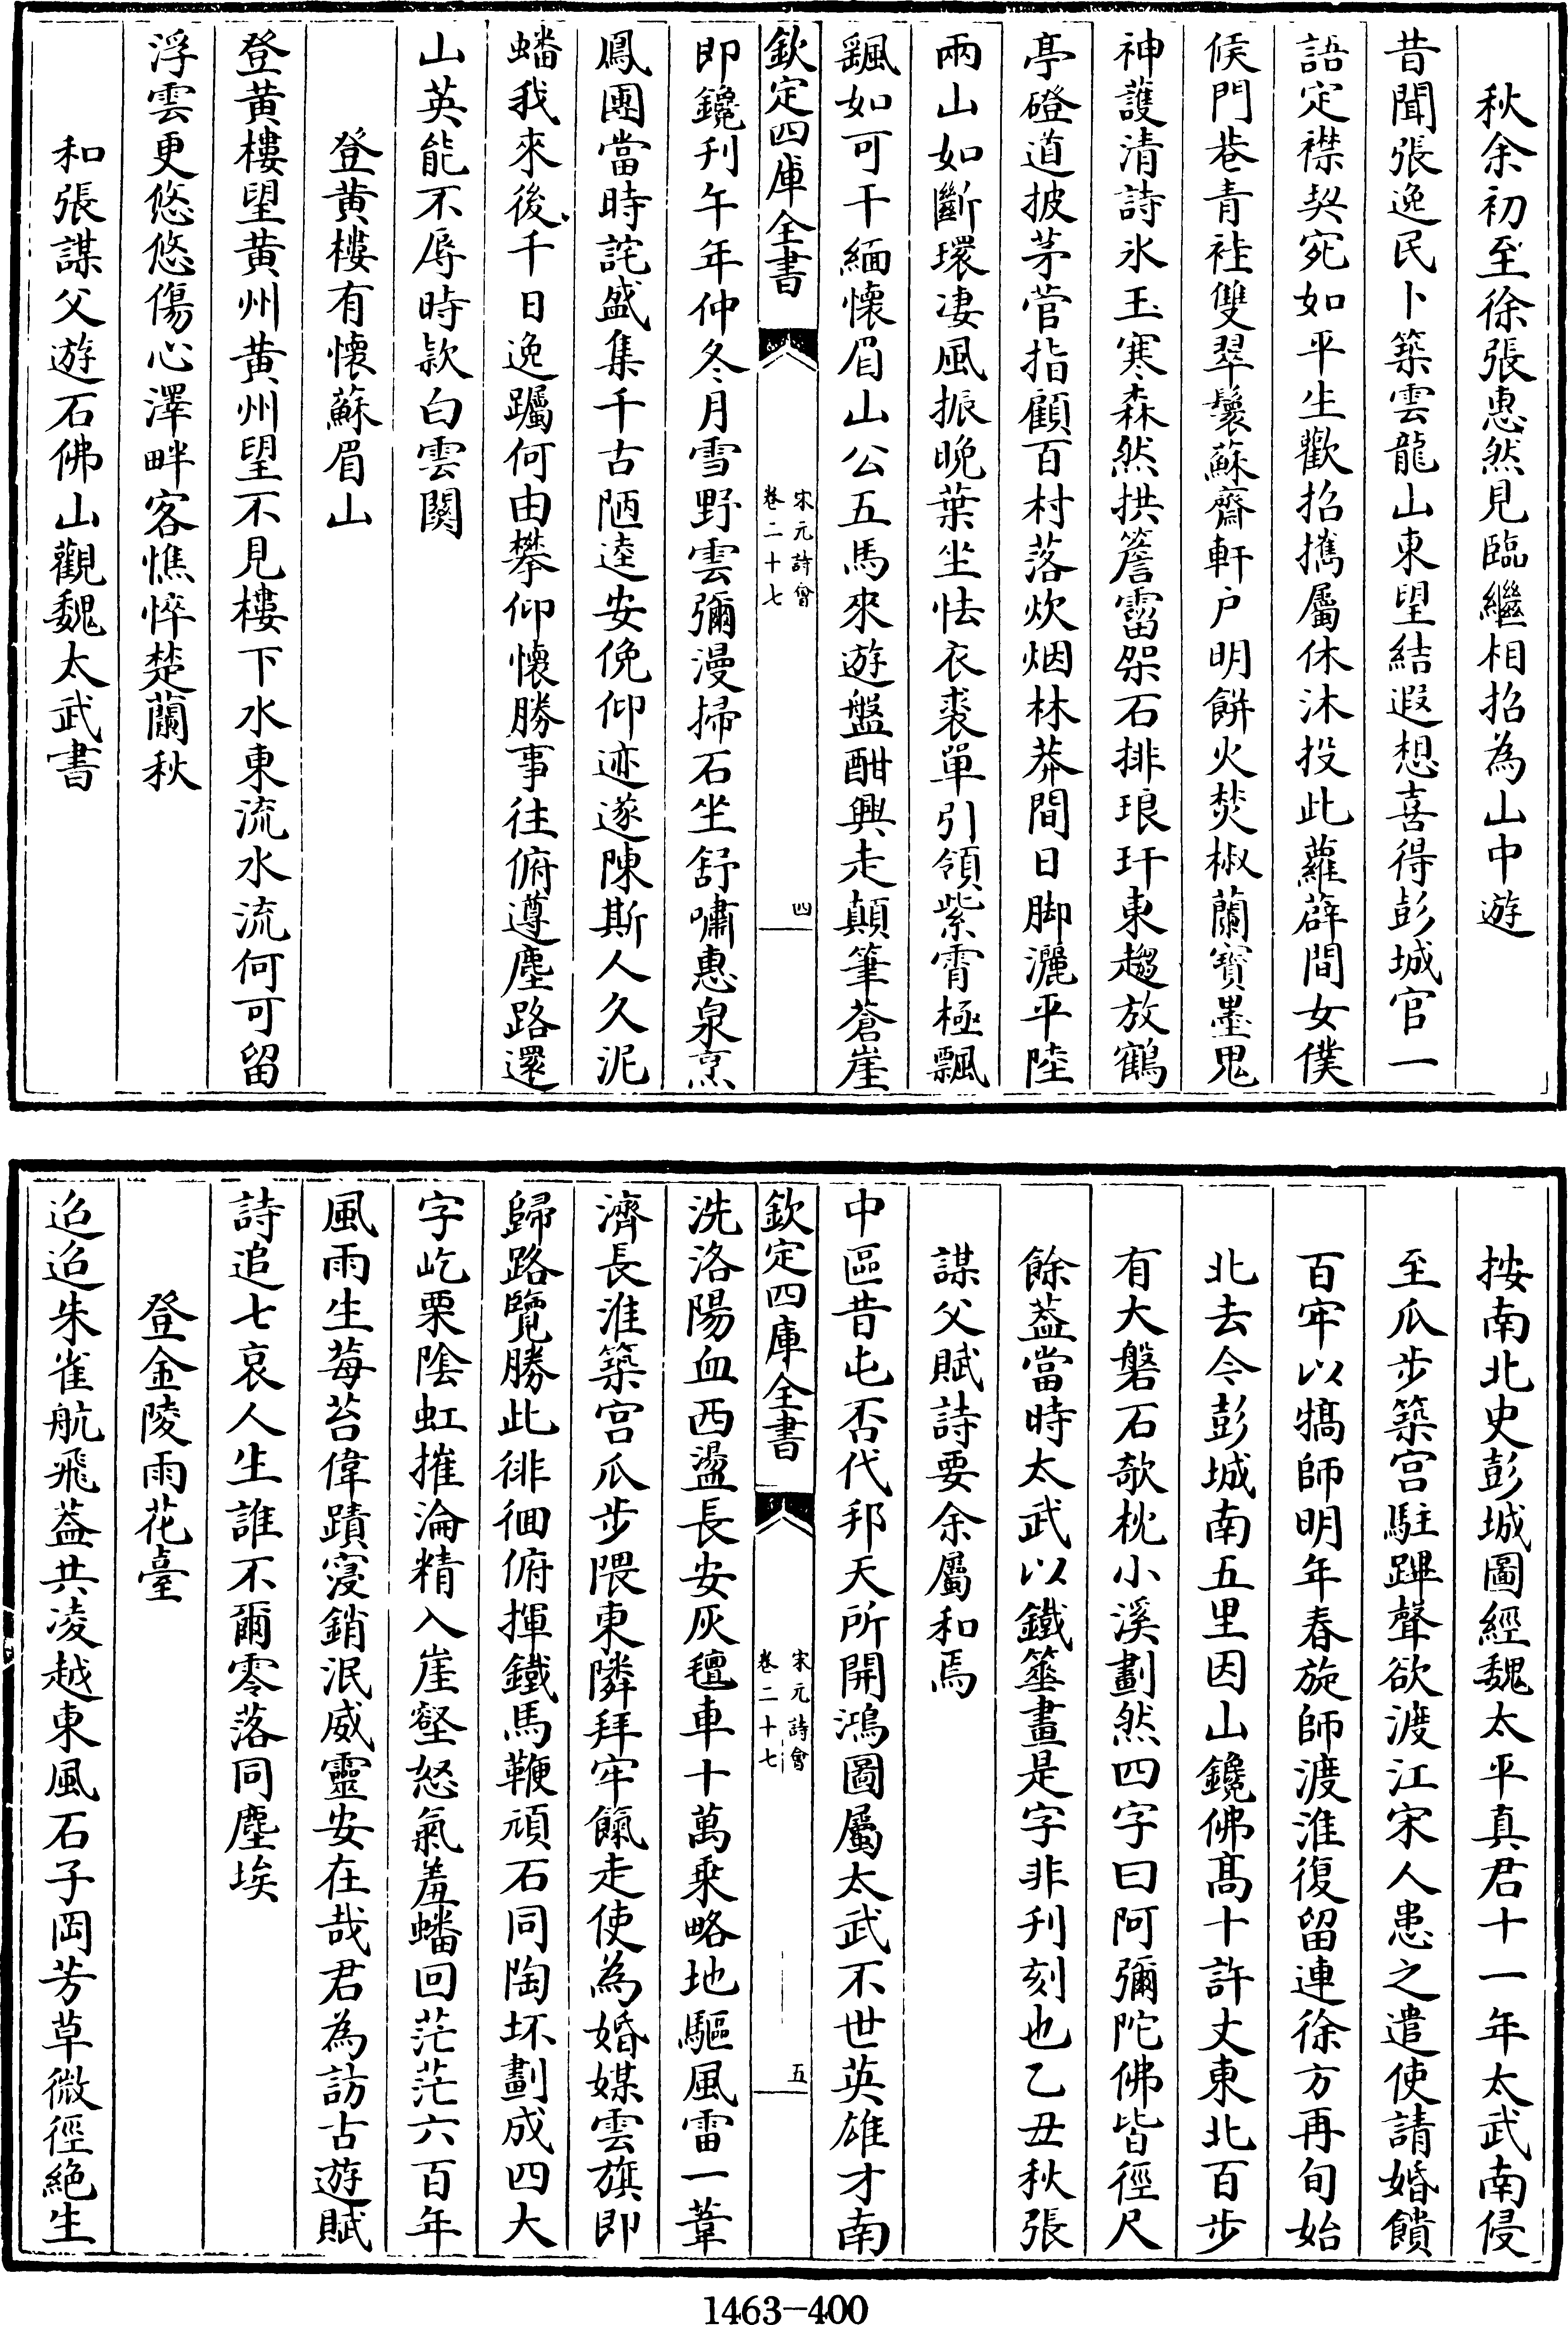 秋余初至徐張惠然見臨繼相招為山中遊
昔聞張逸民卜築雲龍山東望結遐想喜得彭城官一
語定襟契宛如平生歡招攜屬休沐投此蘿薜間女僕
候門巷青袿雙翠鬟蘇齋軒户明餅火焚椒蘭寳墨鬼
神護清詩氷玉寒森然拱簷霤架石排琅玕東趨放鶴
亭磴道披茅菅指顧百村落炊烟林莽間日脚灑平陸
兩山如斷環凄風振晚葉坐怯衣裘單引領紫霄極飄
飄如可干緬懷眉山公五馬來遊盤酣興走顛筆蒼崖
欽定四庫全書
宋元詩會
卷二十七
四
即鑱刋午年仲冬月雪野雲彌漫掃石坐舒嘯惠泉烹
鳳團當時詫盛集千古陋逵安俛仰迹遂陳斯人久泥
蟠我來後千日逸躅何由攀仰懷勝事往俯遵塵路還
山英能不辱時欵白雲闗
登黄樓有懷蘇眉山
登黄樓望黄州黄州望不見樓下水東流水流何可留
浮雲更悠悠傷心澤畔客憔悴楚蘭秋
和張謀父遊石佛山觀魏太武書
按南北史彭城圖經魏太平真君十一年太武南侵
至瓜步築宫駐蹕聲欲渡江宋人患之遣使請婚饋
百牢以犒師明年春旋師渡淮復留連徐方再旬始
北去今彭城南五里因山鑱佛髙十許丈東北百步
有大磐石欹枕小溪劃然四字曰阿彌陀佛皆徑尺
餘葢當時太武以鐵箠畫是字非刋刻也乙丑秋張
謀父賦詩要余屬和焉
中區昔屯否代邦天所開鴻圖屬太武不世英雄才南
欽定四庫全書
宋元詩會
卷二十七
五
洗洛陽血西盪長安灰氊車十萬乗略地驅風雷一葦
濟長淮築宫瓜步隈東隣拜牢餼走使為婚媒雲旗即
歸路覽勝此徘徊俯揮鐵馬鞭頑石同陶坏劃成四大
字屹栗陰虹摧淪精入崖壑怒氣羞蟠回茫茫六百年
風雨生莓苔偉蹟寖銷泯威靈安在哉君為訪古遊賦
詩追七哀人生誰不爾零落同塵埃
登金陵雨花臺
迢迢朱雀航飛葢共凌越東風石子岡芳草微徑絶生
1463-400